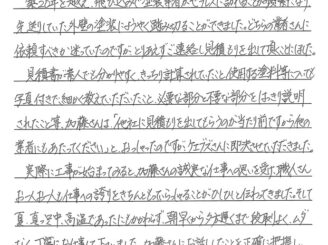 築20年を超え、飛び込みの塗装業者がたくさん訪ねて
年送りしていた外壁の塗装にようやく踏み切ることができました。どちらの業者さんに
依頼すべきか迷っていたのですが、とりあえずご連絡し見積もりを出して頂きました。
見積書が素人でも分かりやすく、きっちり計算されていたこと、使用する塗料等についても
写真付きで細かく教えていただいたこと、必要な部分と不要な部分をはっきり説明
されたこと等、加藤さんは「他社に見積もりを出してもらうのが当たり前ですから他の
業者にもあたってください」とおっしゃったのですがケイズさんに即決させていただきました。
実際に工事が始まってみると、加藤さんの誠実な仕事への思いを受け、職人さん
お一人お一人も仕事への誇りをきちんともっていらっしゃることがひしひしと伝わってきました。そして
夏、真っ只中、高温であったにもかかわらず、朝早くから夕遅くまで段取りよく、ムダ
なく丁寧にお仕事して下さいました。加藤さんにお話ししたことを正確に把握し、